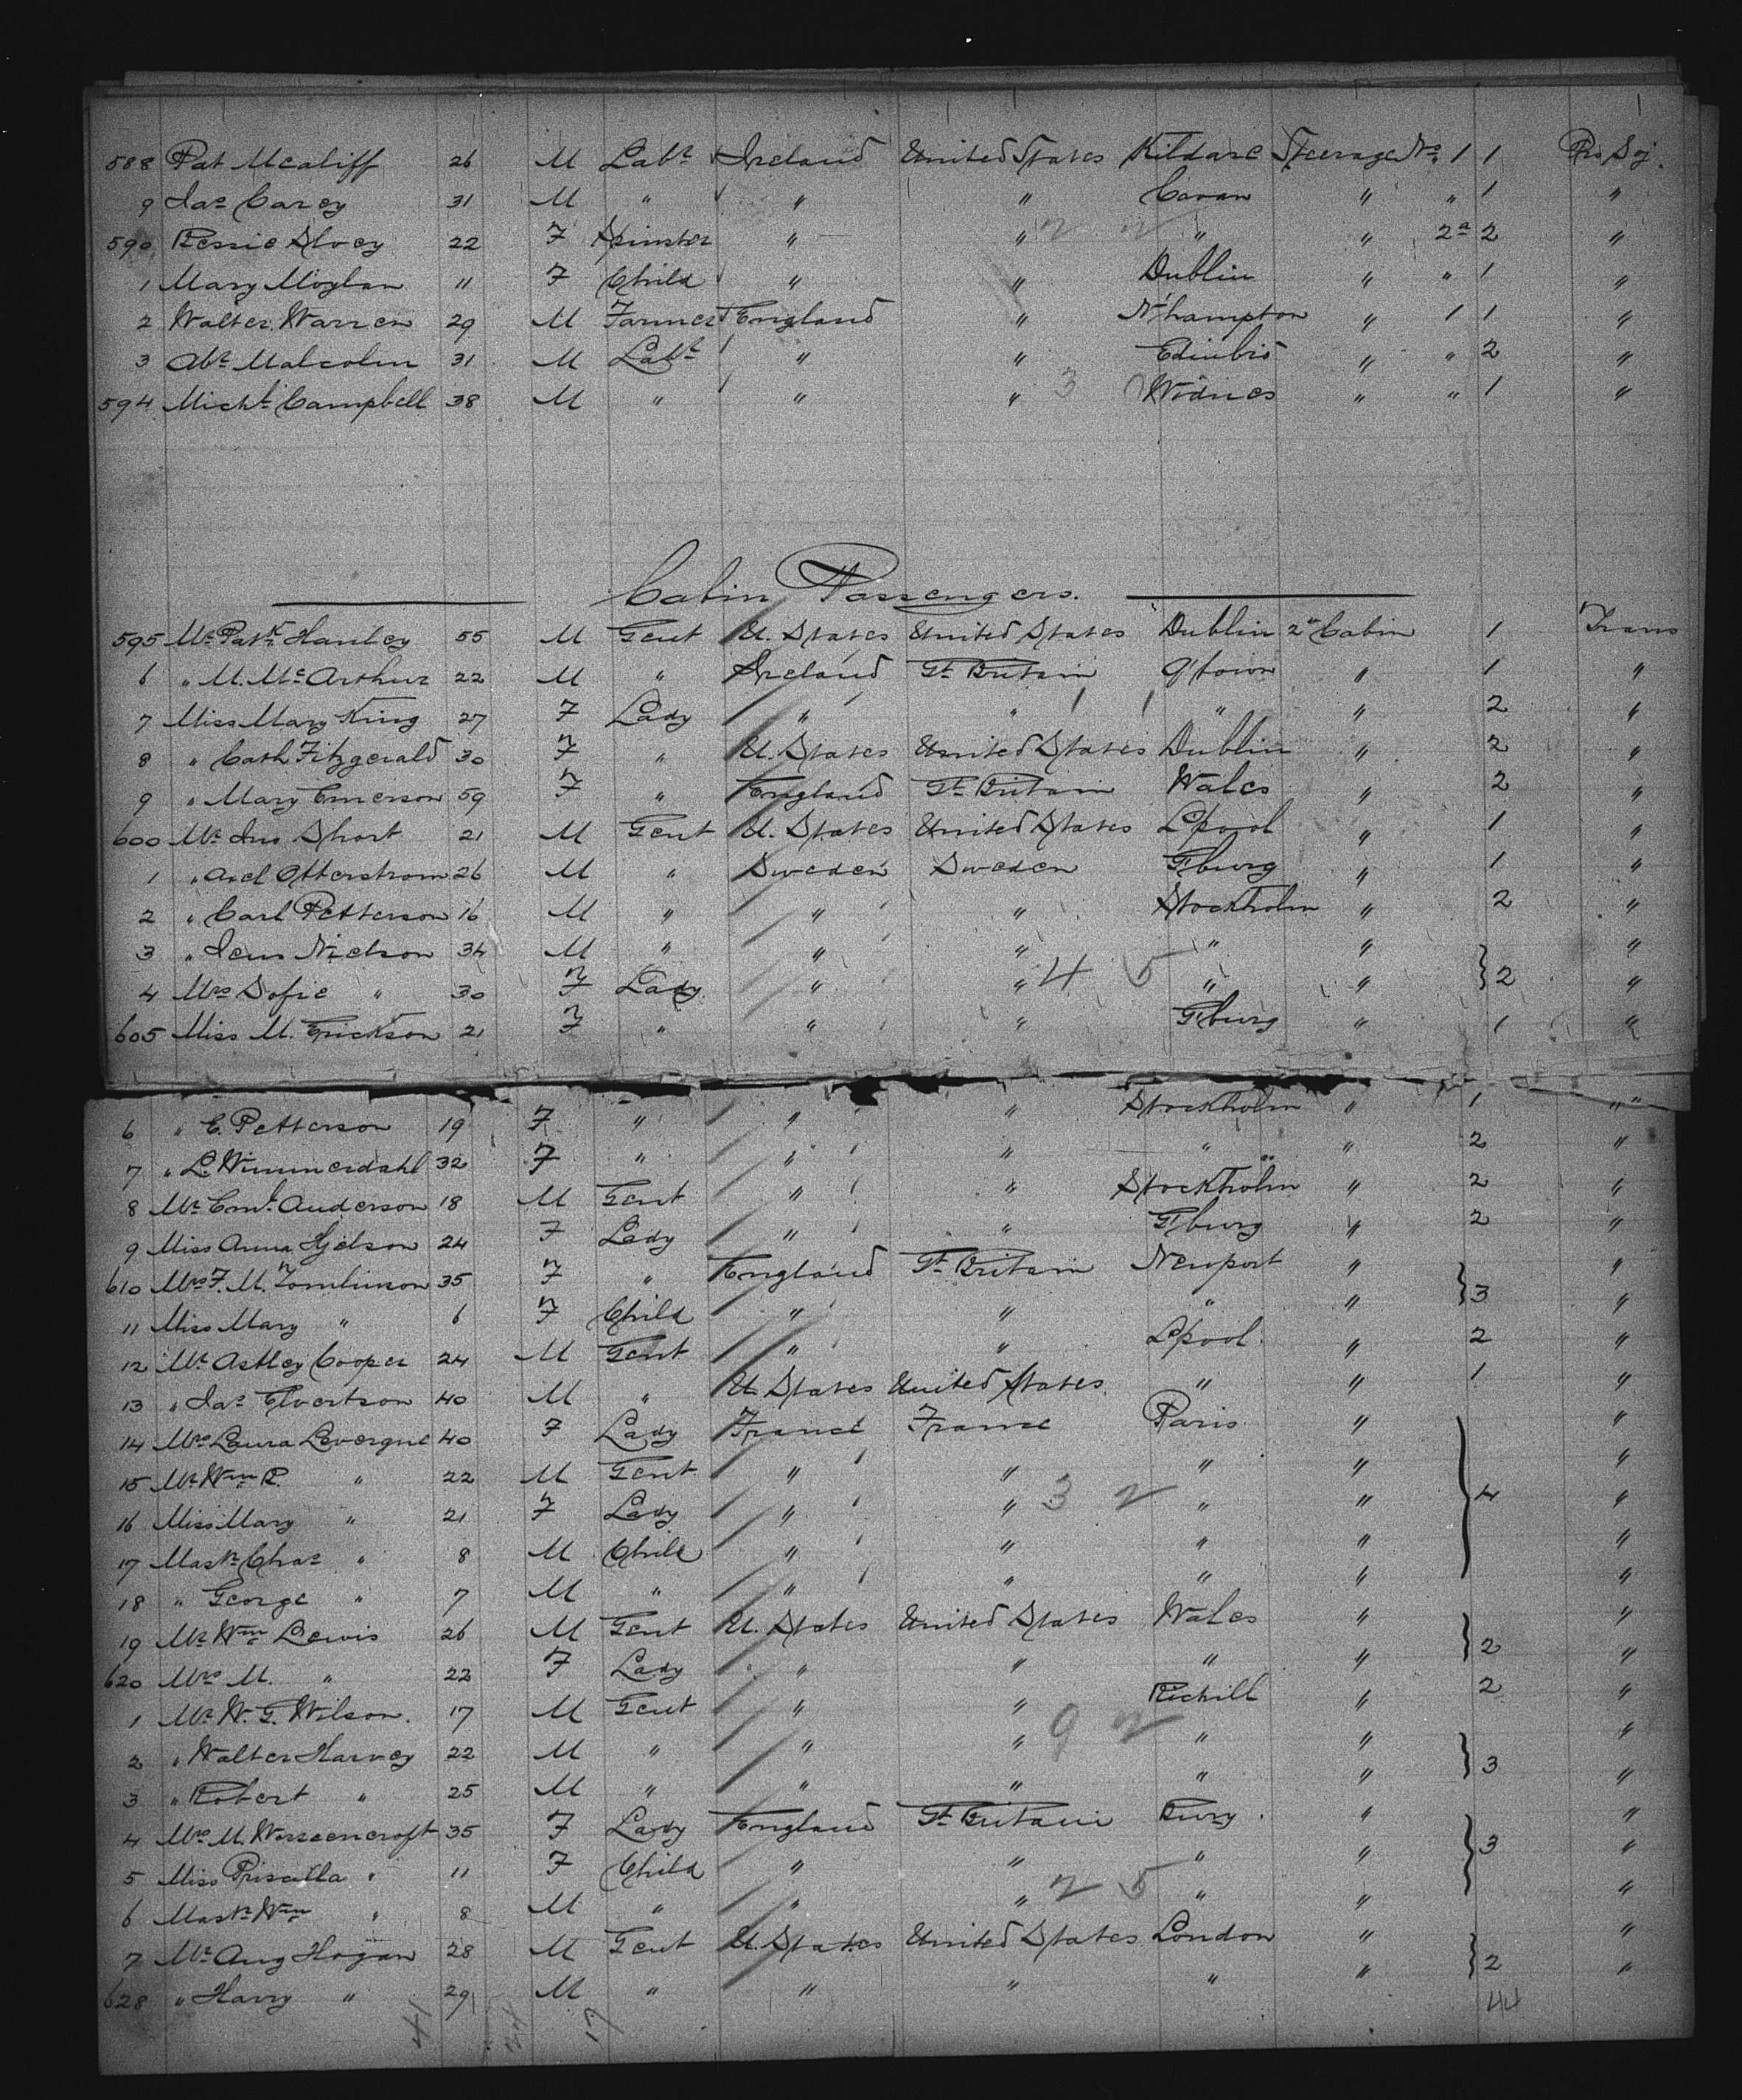 588 Pat Mcaliff 26 M Labr Ireland United States Kildare Steerage No. 1 1 Pro Soj.
9 Jas Carey 31 M " " " Cavan " " 1 "
590 Bessie 22 F Spinster " " " " 2a 2 "
1 Mary Moylan 11 F Child " " Dublin " " 1 "
2 Walter Warren 29 M Farmer England " N'hampton " 1 1 "
3 Abr Malcolm 31 M Labr " " Edinbro " " 2 "
594 Michl Campbell 38 M " " " 3 Widnes " " 1 "
Cabin Passengers.
595 Mr Patk Hanley 55 M Gent U. States United States Dublin 2d Cabin 1 Trans
6 " M. McArthur 22 M " Ireland Gt Britain Q'town " 1 "
7 Miss Mary King 27 F Lady " " 1 1 " " 2 "
8 " Cath Fitzgerald 30 F " U. States United States Dublin " 2 "
9 " Mary Emerson 59 F " England Gt Britain Wales " 2 "
600 Mr Jno Short 21 M Gent U. States United States L'pool " 1 "
1 " Axel Otterstrom 26 M " Sweden Sweden G'burg " 1 "
2 " Carl Petterson 16 M " " " Stockholm " 2 "
3 " Jens Nielson 34 M " " " " " "
4 Mrs Sofie " 30 F Lady " " 4 5 " " } 2 "
605 Miss M. Erickson 21 F " " " G'burg " 1 "
6 " E. Petterson 19 F " " " Stockholm " 1 "
7 " L. Wimmerdahl 32 F " " " " " 2 "
8 Mr Eml Anderson 18 M Gent " " Stockholm " 2 "
9 Miss Anna Hjelson 24 F Lady " " G'burg " 2 "
610 Mrs F. M. Tomlinson 35 F " England Gt Britain Newport " "
11 Miss Mary " 6 F Child " " " " } 3 "
12 Mr Astley Cooper 24 M Gent " " L'pool " 2 "
13 " Jas Elvertson 40 M " U. States United States " " 1 "
14 Mrs Laura Levergne 40 F Lady France France Paris " "
15 Mr Wm R. " 22 M Gent " " " " "
16 Miss Mary " 21 F Lady " " 3 2 " " } 4 "
17 Mastr Chas " 8 M Child " " " " "
18 " George " 7 M " " " " " "
19 Mr Wm Lewis 26 M Gent U. States United States Wales " "
620 Mrs M. " 22 F Lady " " " " } 2 "
1 Mr W. G. Wilson. 17 M Gent " " Richill " 2 "
2 " Walter Harvey 22 M " " " 9 2 " " "
3 " Robert " 25 M " " " " " } 3 "
4 Mrs M. 35 F Lady England Gt Britain Bury. " "
5 Miss Priscilla " 11 F Child " " " " } 3 "
6 Mastr Wm " 8 M " " " 2 5 " " "
7 Mr Aug Hogan 28 M Gent U. States United States London " "
628 " Harry " 29 M " " " " " } 2 "
41 24 17 44